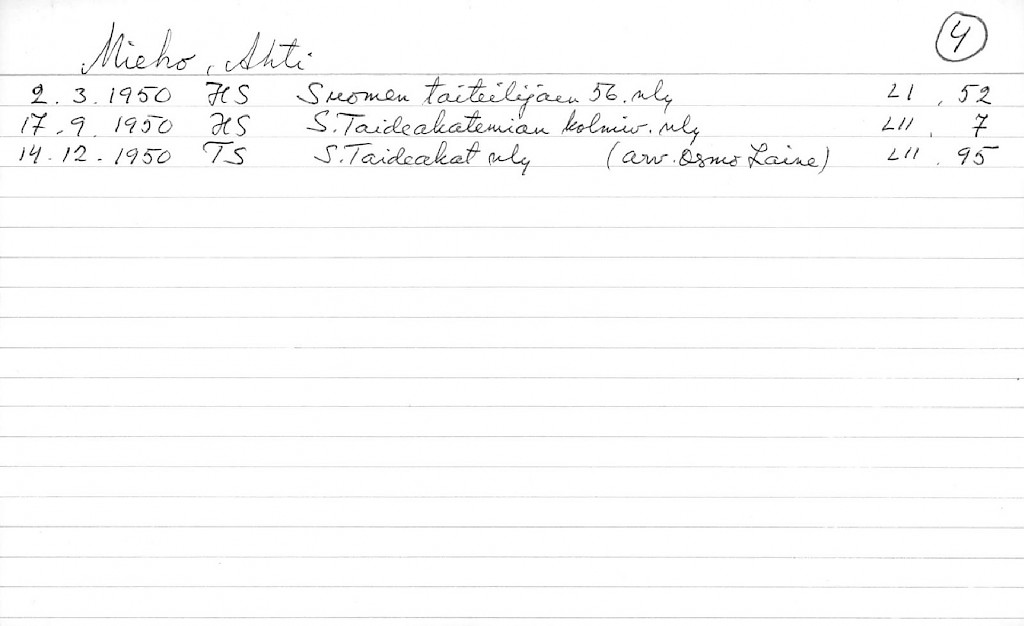 4
Mieho, Ahti
2.3.1950 HS Suomen taiteilijaen 56. nly LI, 52
17.9.1950 HS S. Taideakatemian kolmiv. nly LII, 7
14.12.1950 TS S. Taideakat nly (arv. Osmo Laine) LII. 95